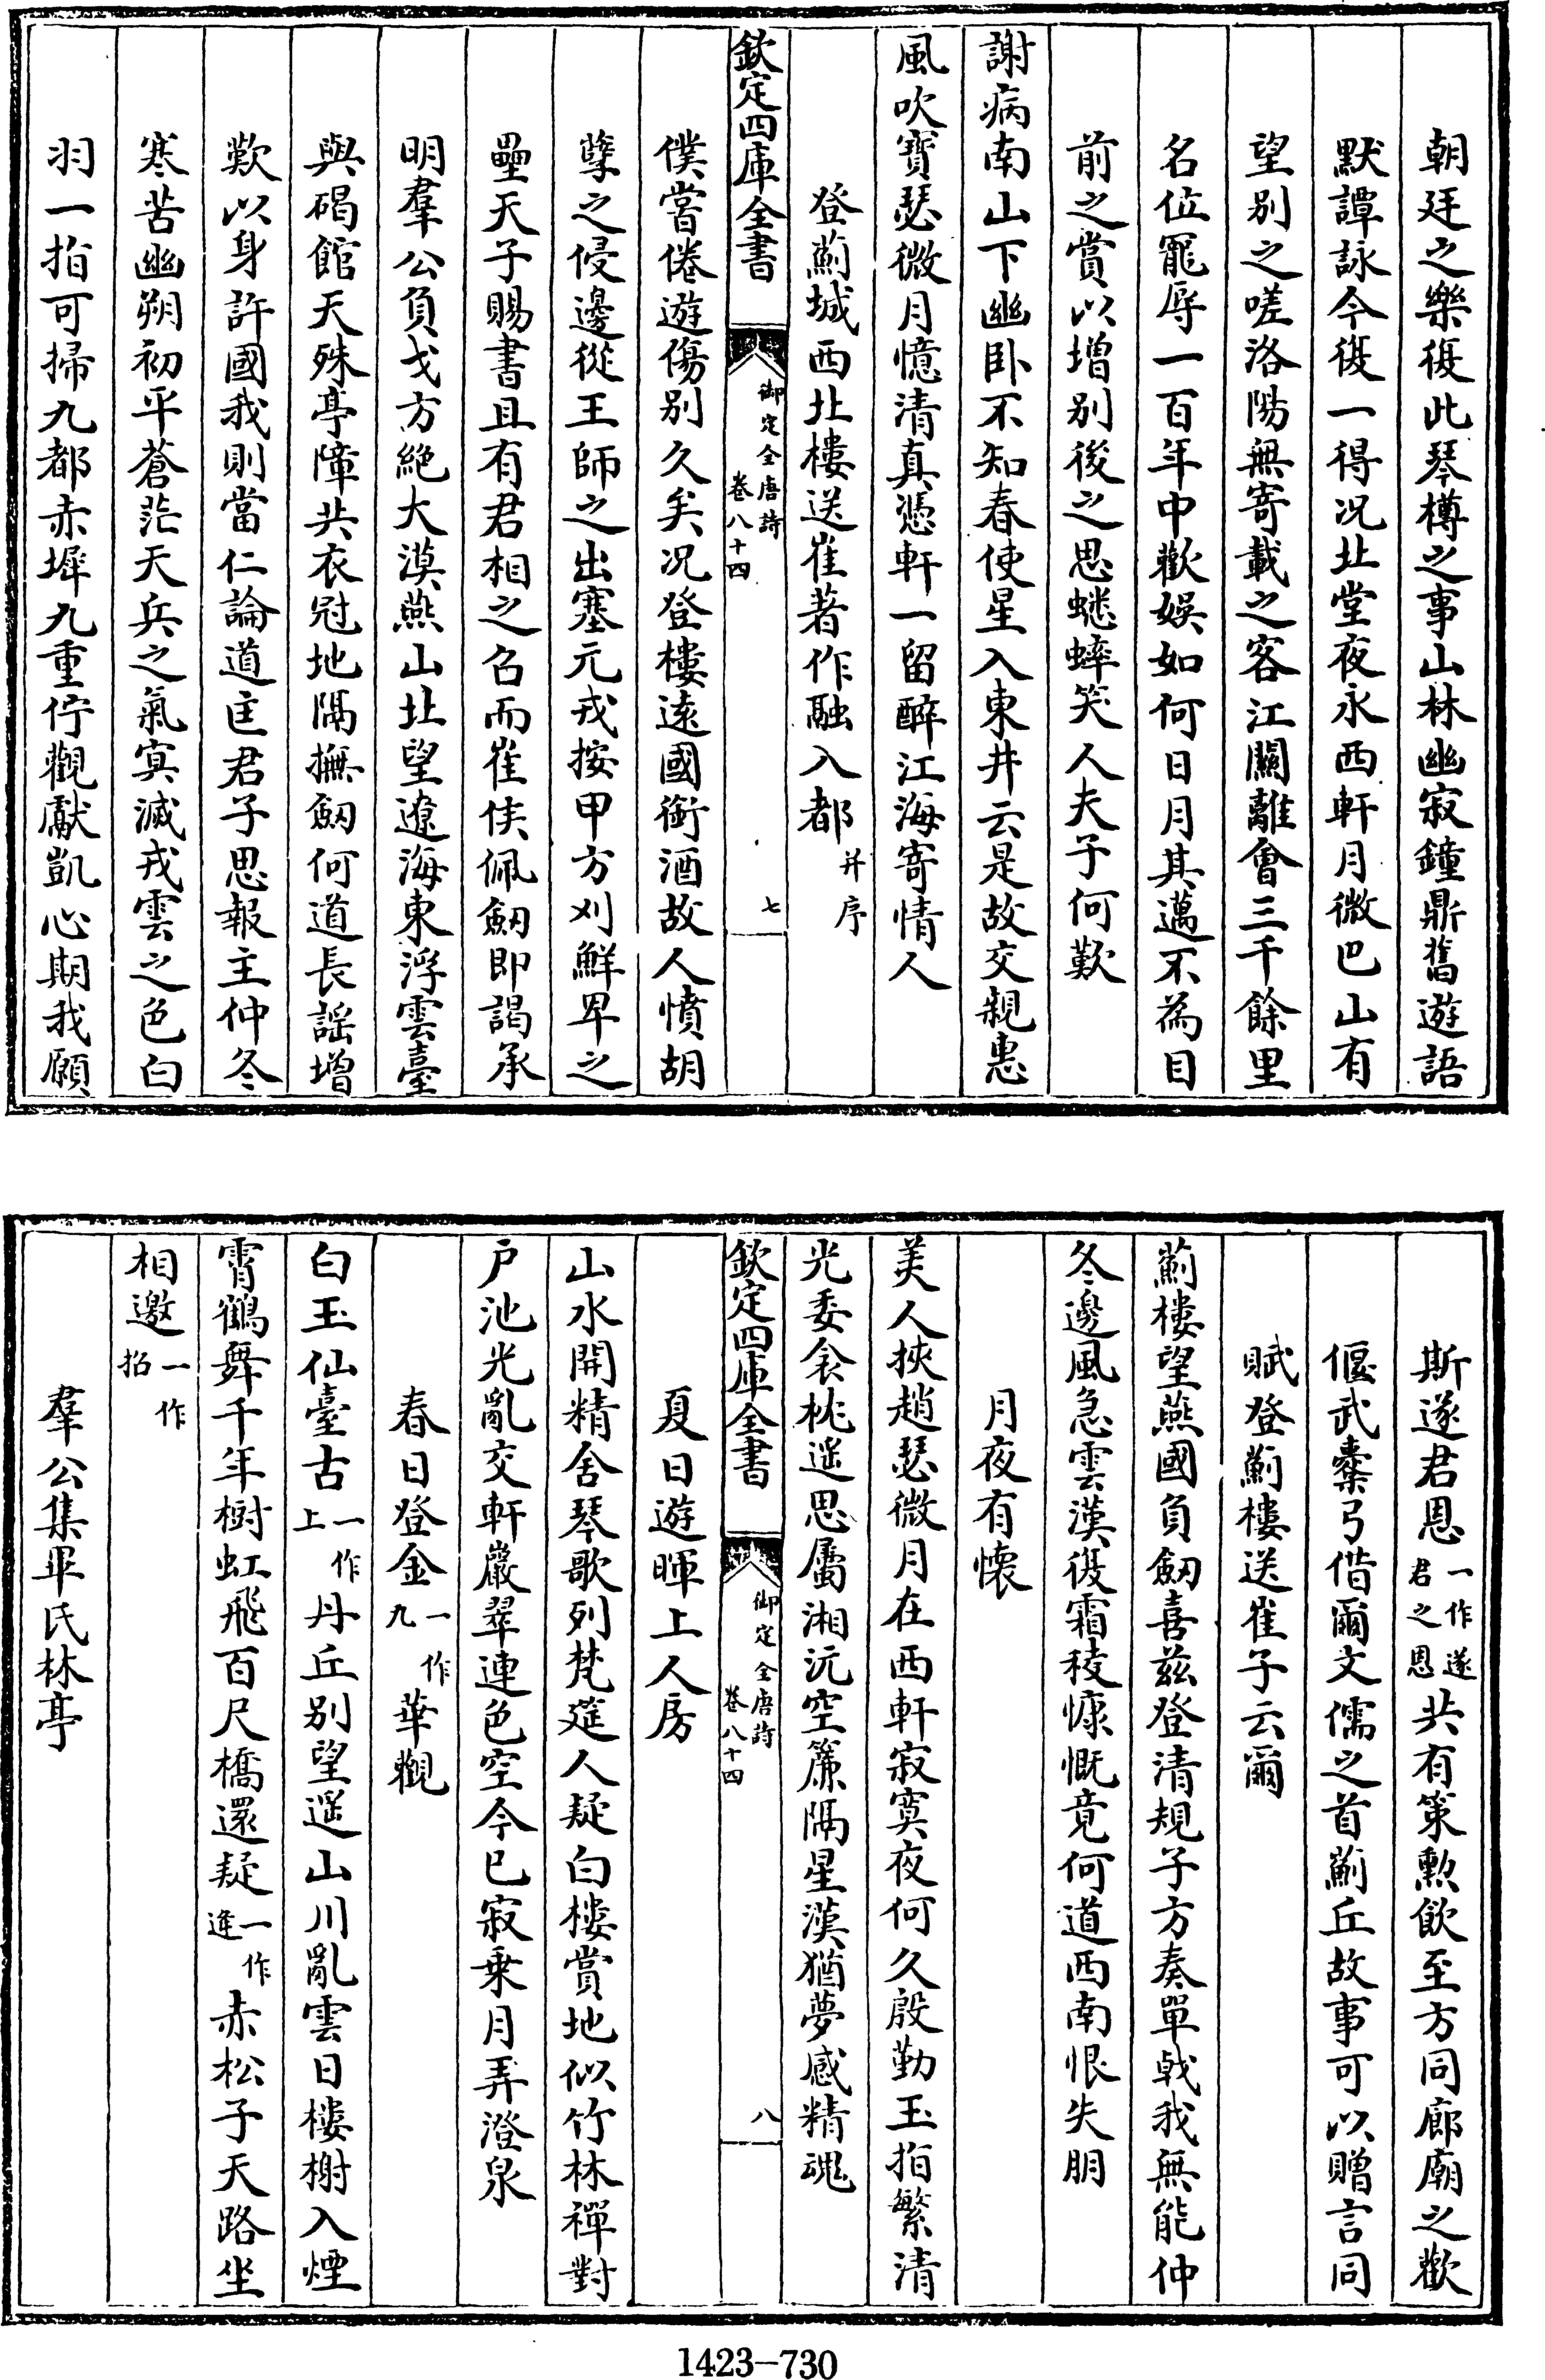 朝廷之樂復此琴樽之事山林幽寂鐘鼎舊遊語
默譚詠今復一得况北堂夜永西軒月微巴山有
望別之嗟洛陽無寄載之客江關離會三千餘里
名位寵辱一百年中歡娛如何日月其邁不為目
前之賞以增別後之思蟋蟀笑人夫子何歎
謝病南山下幽卧不知春使星入東井云是故交親惠
風吹寶瑟微月憶清真憑軒一留醉江海寄情人
登薊城西北樓送崔著作融入都并序
欽定四庫全書 御定全唐詩 卷八十四 七
僕嘗倦遊傷別久矣况登樓遠國銜酒故人憤胡
孽之侵邊從王師之出塞元戎按甲方刈鮮卑之
壘天子賜書且有君相之召而崔侯佩劒即謁承
明羣公負戈方絶大漠燕山北望遼海東浮雲臺
與碣館天殊亭障共衣冠地隔撫劒何道長謡增
歎以身許國我則當仁論道匡君子思報主仲冬
寒苦幽朔初平蒼茫天兵之氣冥滅戎雲之色白
羽一指可掃九都赤墀九重佇觀獻凱心期我願
斯遂君恩一作遂君之恩共有策勲飲至方同廊廟之歡
偃武櫜弓借爾文儒之首薊丘故事可以贈言同
賦登薊樓送崔子云爾
薊樓望燕國負劒喜兹登清規子方奏單戟我無能仲
冬邊風急雲漢復霜稜慷慨竟何道西南恨失朋
月夜有懷
美人挾趙瑟微月在西軒寂寞夜何久殷勤玉指繁清
光委衾枕遥思屬湘沅空簾隔星漢猶夢感精魂
欽定四庫全書 御定全唐詩 卷八十四 八
夏日遊暉上人房
山水開精舍琴歌列梵筵人疑白樓賞地似竹林禪對
户池光亂交軒巖翠連色空今已寂乗月弄澄泉
春日登金一作九華觀
白玉仙臺古一作上丹丘別望遥山川亂雲日樓榭入煙
霄鶴舞千年樹虹飛百尺橋還疑一作逢赤松子天路坐
相邀一作招
羣公集畢氏林亭
1423-730